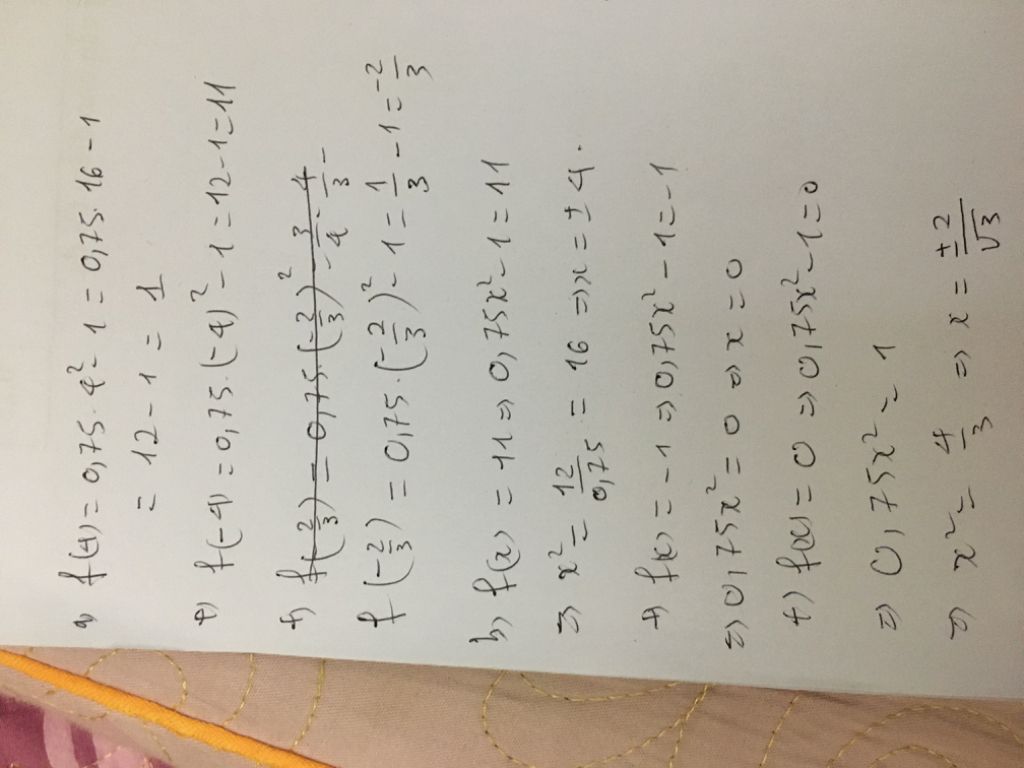 a) f(4) = 0,75 . 4² - 1 = 0,75 . 16 - 1
= 12 - 1 = 11
+) f(-4) = 0,75 . (-4)² - 1 = 12 - 1 = 11
f(-2/3) = 0,75 . (-2/3)² - 1 = 1/3 - 1 = -2/3
b) f(x) = 11 => 0,75x² - 1 = 11
=> x² = 12/0,75 = 16 => x = ± 4 .
+) f(x) = -1 => 0,75x² - 1 = -1
=> 0,75x² = 0 => x = 0
+) f(x) = 0 => 0,75x² - 1 = 0
=> 0,75x² = 1
=> x² = 4/3 => x = ±2/√3